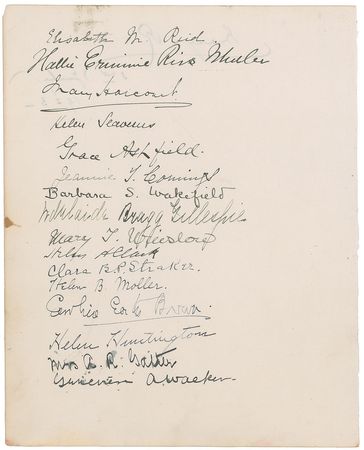 Elisabeth M. Reid
Hattie Erminie Rives Wheeler
Mary Harcourt
Helen Seavems
Grace Ashfield.
Jeannie T. Comings
Barbara S. Wakefield
Adelaide Bragg Gillespie
Mary T. Winslow
Helen A Clark
Clara B. P. Straker.
Helen B Moller.
Brown
Helen Huntington
Mrs A. R.
Awacker.